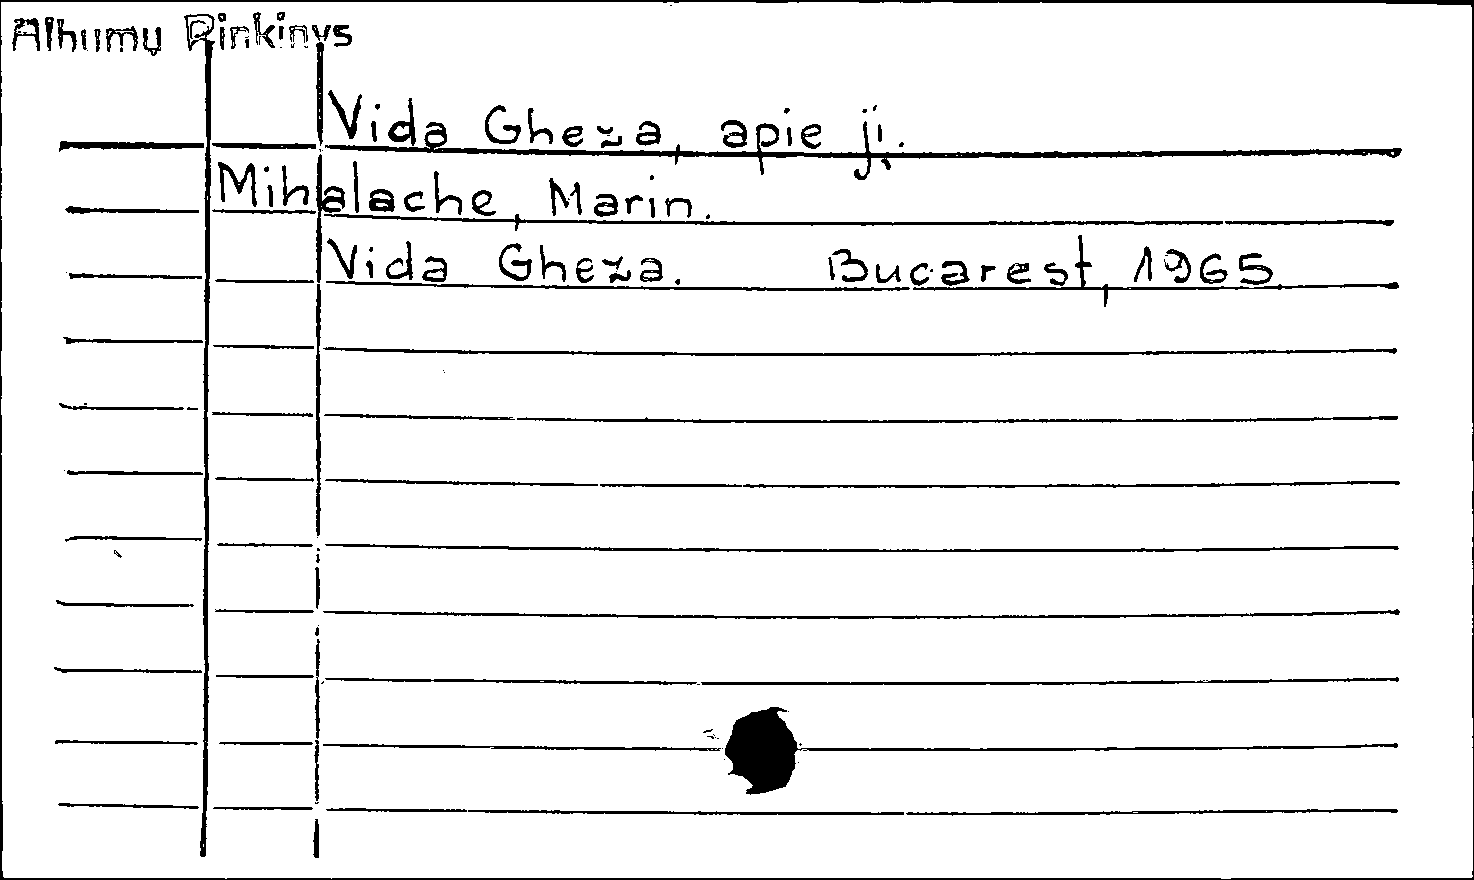 Albumų Rinkinys
Vida Gheza, apie jį.
Mihalache, Marin.
Vida Gheza. Bucarest, 1965.